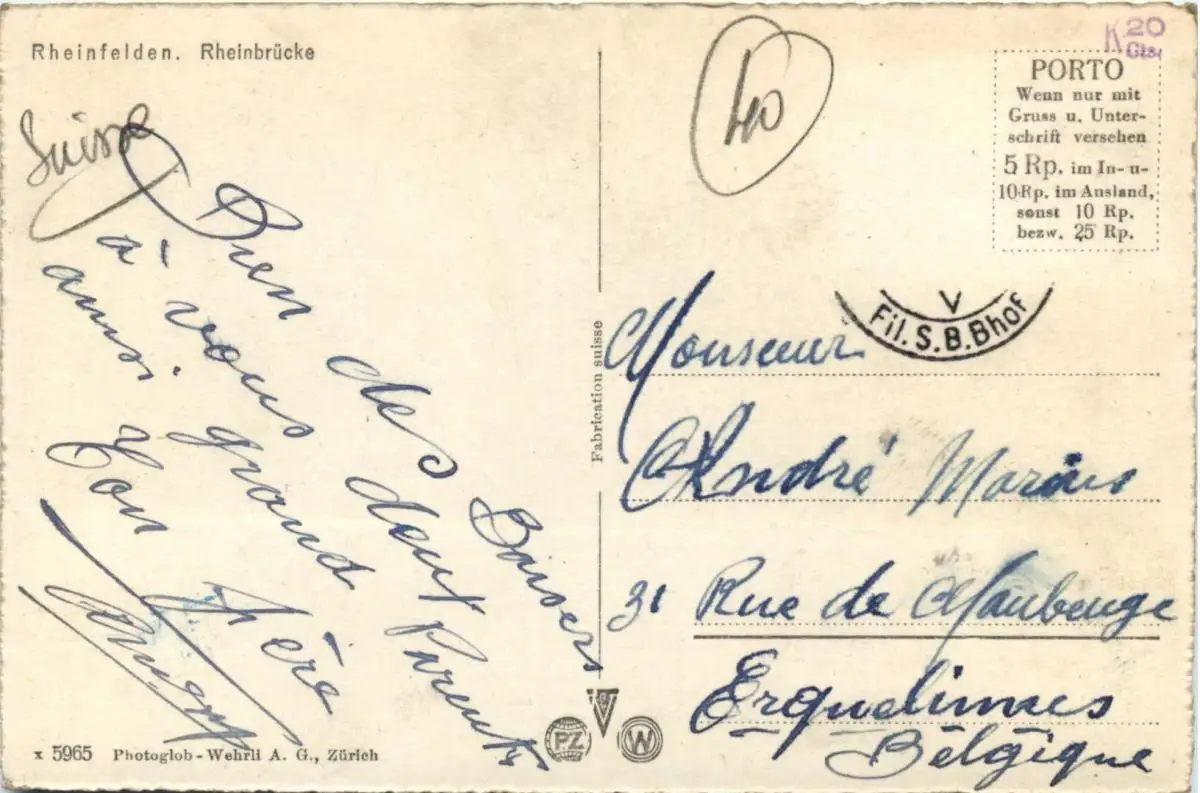 Rheinfelden. Rheinbrücke
Suisse
Bien des Baisers
à vous deux Parents
amis grand
Ton Père
40
K 20
Cts.
PORTO
Wenn nur mit
Gruss u. Unter-
schrift versehen
5 Rp. im In- u-
10 Rp. im Ausland,
sonst 10 Rp.
bezw. 25 Rp.
V
Fil. S.B.Bhof
Fabrication suisse
Monsieur
André Marius
31 Rue de Maubeuge
Erquelinnes
Belgique
PZ
W
x 5965 Photoglob-Wehrli A. G., Zürich